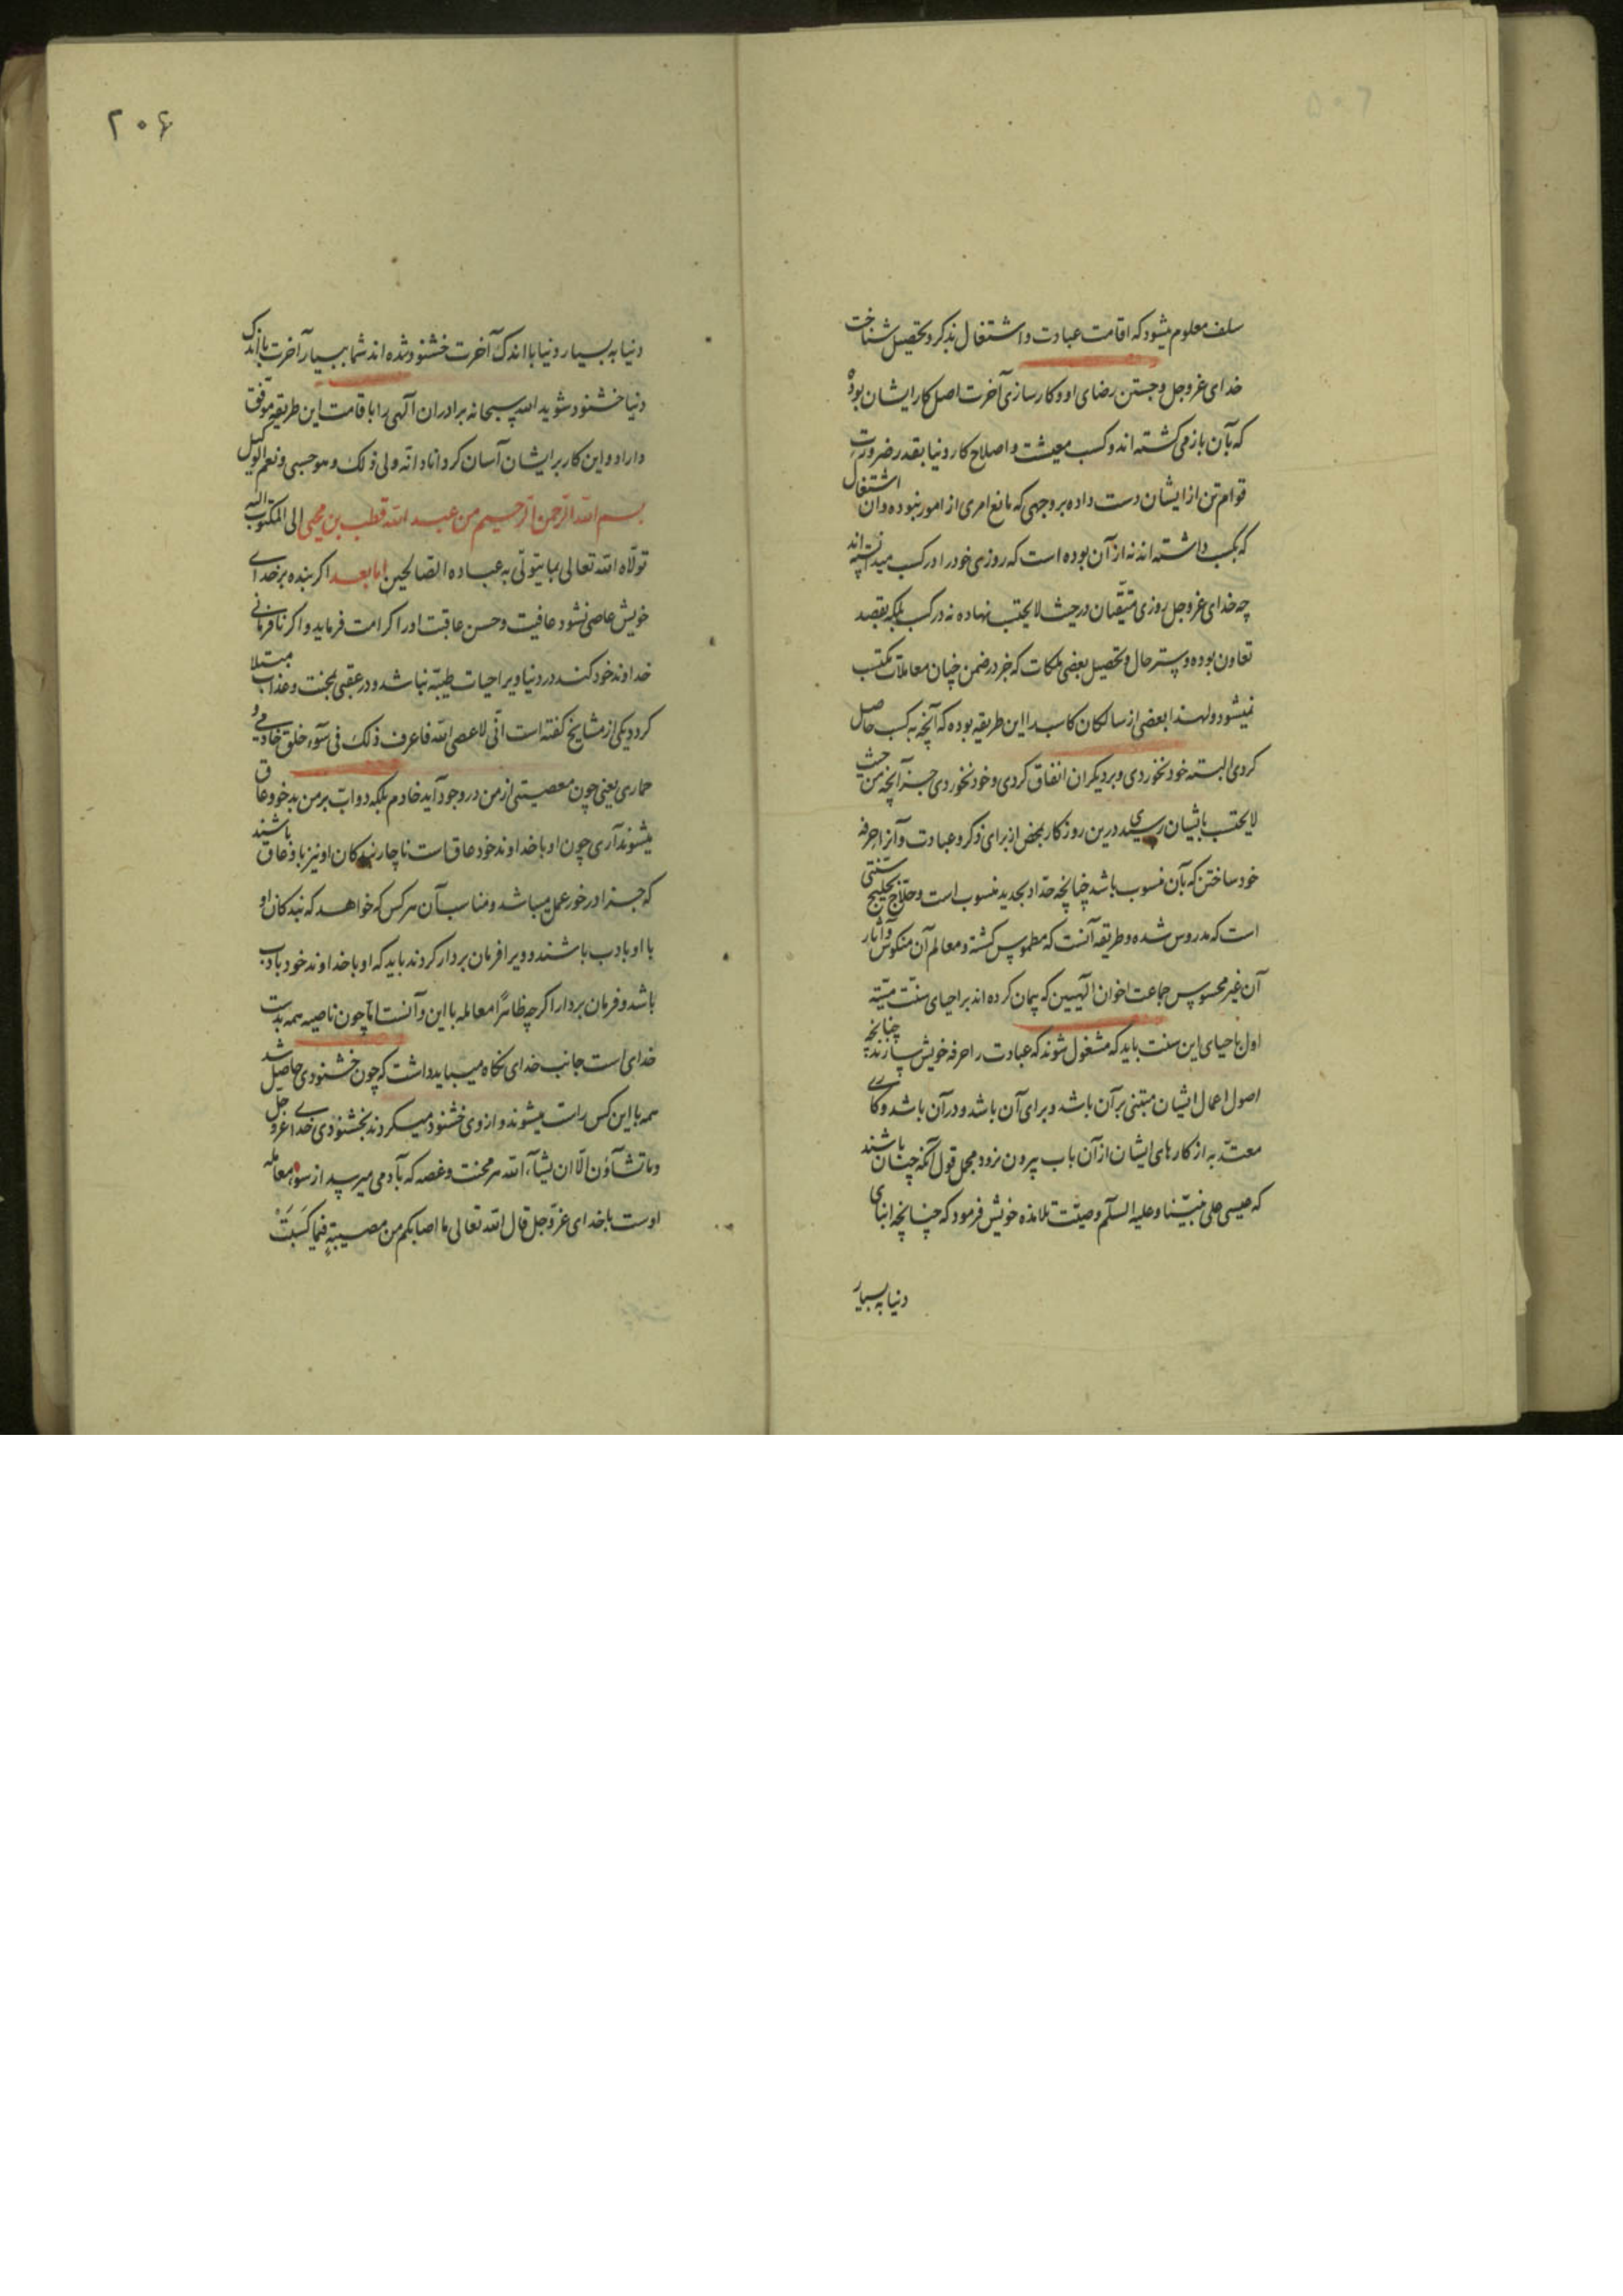 سلف معلوم میشود که اقامت عبادت و اشتغال بذکر و تحصیل شناخت
خدای عزوجل و جستن رضای او و کارسازی آخرت اصل کار ایشان بوده
که بآن بازمی کشته اند و کسب معیشت و اصلاح کار دنیا بقدر ضرورت
قوام تن از ایشان دست داده بر وجهی که مانع امری از امور نبوده و آن اشتغال
که بکسب داشته اند نه از آن بوده است که روزی خود را در کسب میدانسته اند
چه خدای عزوجل روزی متقیان در حیث لا یحتسب نهاده نه در کسب بلکه بقصد
تعاون بوده و ستر حال و تحصیل بعضی ملکات که جز در ضمن چنان معاملات مکتسب
نمیشود و لهذا بعضی از سالکان کاسب را این طریقه بوده که آنچه به کسب حاصل
کردی البته خود نخوردی و بر دیکران انفاق کردی و خود نخوردی جز آنچه من حیث
لا یحتسب باایشان رسیدی درین روزکار محض از برای ذکر و عبادت و آنرا حرفه
خود ساختن که بآن منسوب باشد چنانچه حداد بحدید منسوب است و حلاج بحلیج سنتی
است که مدروس شده و طریقه آنست که مطموس کشته و معالم آن منکوس و آثار
آن غیر محسوس جماعت اخوان الهیین که پیمان کرده اند بر احیای سنت میته
اول باحیای این سنت باید که مشغول شوند که عبادت را حرفه خویش سازند چنانچه
اصول اعمال ایشان مبتنی بر آن باشد و برای آن باشد و در آن باشد و کاری
معتد به از کارهای ایشان از آن باب بیرون نرود مجمل قول آنکه چنان باشند
که عیسی علی نبینا و علیه السلم وصیت تلامذه خویش فرمود که چنانچه ابنای
دنیا به بسیار
۲۰۶
دنیا به بسیار دنیا با اندک آخرت خشنود شده اند شما ببسیار آخرت بااندک
دنیا خشنود شوید الله سبحانه برادران الهی را باقامت این طریقه موفق
داراد و این کار بر ایشان آسان کرداناد انه ولی ذلک و هو حسبی و نعم الوکیل
بسم الله الرحمن الرحیم من عبد الله قطب بن محیی الی المکتوب الیه
تولاه الله تعالی بما یتولی به عباده الصالحین اما بعد اکر بنده بر خدای
خویش عاصی نشود عافیت و حسن عاقبت او را کرامت فرماید و اکر نافرمانی
خداوند خود کند در دنیا ویرا حیات طیبه نباشد و در عقبی بمحنت و عذاب مبتلا
کردد یکی از مشایخ کفته است انی لاعصی الله فاعرف ذلک فی سوء خلق خادمی و
حماری یعنی چون معصیتی از من در وجود آید خادم بلکه دواب بر من بدخو و عاق
میشوند آری چون او با خداوند خود عاق است ناچار بندکان او نیز با وعاق باشند
که جزا در خور عمل میباشد و مناسب آن هر کس که خواهد که بندکان او
با او بادب باشند و ویرا فرمان بردار کردند باید که او با خداوند خود بادب
باشد و فرمان بردار اکر چه ظاهرا معامله با این و آنست اما چون ناصیه همه بدست
خدای است جانب خدای نکاه میباید داشت که چون خشنودی حاصل شد
همه با این کس راست میشوند و از وی خشنود میکردند بخشنودی خدای عزوجل
و ما تشاؤن الا ان یشاء الله هر محنت و غصه که بآدمی میرسد از سوء معامله
اوست با خدای عزوجل قال الله تعالی ما اصابکم من مصیبة فبما کسبت